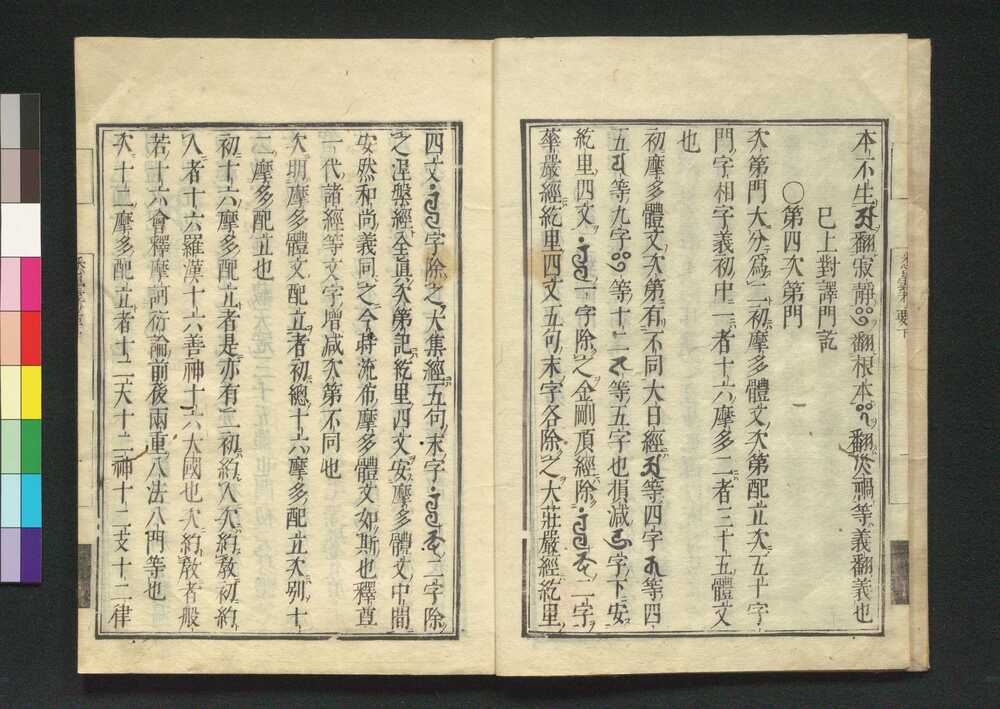 本不生𑖀翻寂靜𑖂翻根本𑖊翻災禍等義翻義也
已上對譯門訖
〇第四次第門
次第門大分爲二初摩多體文次第配立次五十字
門字相字義初中一者十六摩多二者三十五體文
也
初摩多體文次第有不同大日經𑖀等四字等四
五等九字𑖂等十二等五字也損減字下安
紇里四文一字除之金剛頂經除二字
華嚴經紇里四文五句末字各除之大莊嚴經紇里
四文字除之大集經五句末字二字除
之涅槃經全眞次第記紇里四文安摩多體文中間
安然和尚義同之今時流布摩多體文如斯也釋尊
一代諸經等文字增减次第不同也
次明摩多體文配立者初總十六摩多配立次別十
二摩多配立也
初十六摩多配立者是亦有二初約人次約敎初約
人者十六羅漢十六善神十六大國也次約敎者般
若十六會釋摩訶衍論前後兩重八法八門等也
次十二摩多配立者十二天十二神十二支十二律